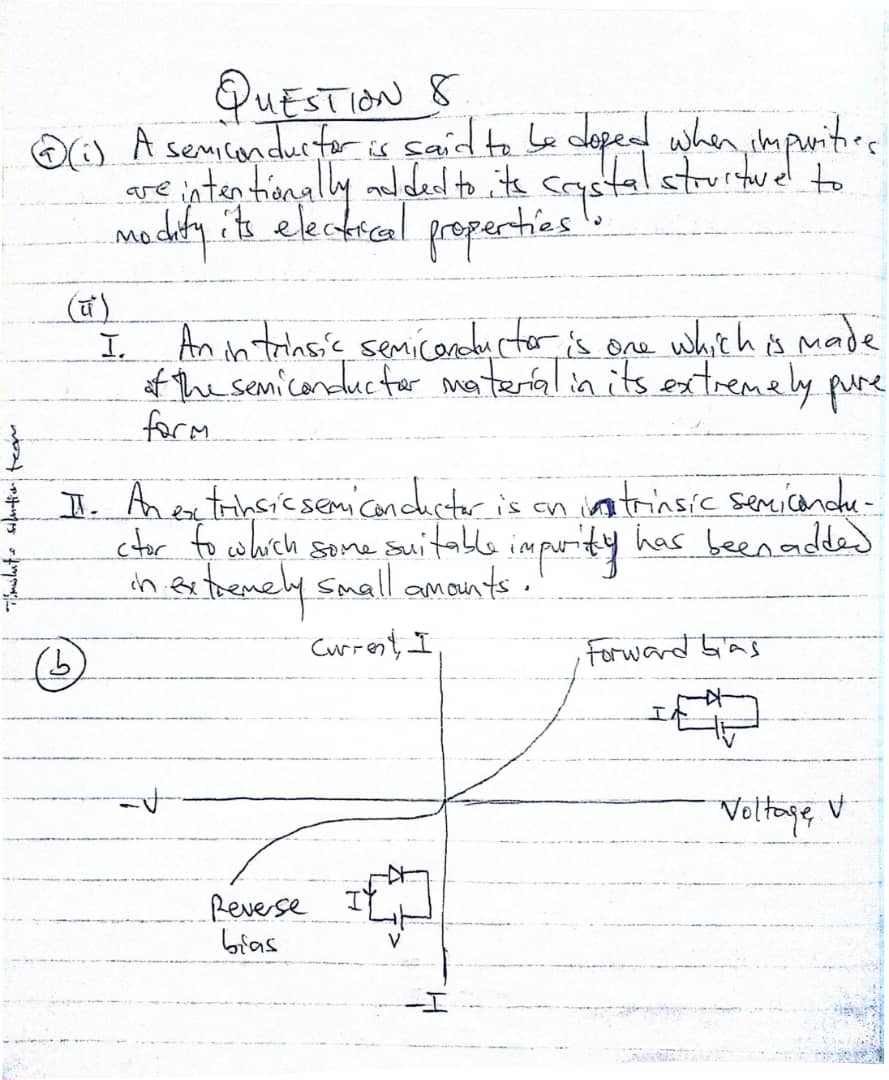 QUESTION 8
a(i) A semiconductor is said to be doped when impurities
are intentionally added to its crystal structure to
modify its electrical properties.
(ii)
I. An intrinsic semiconductor is one which is made
of the semiconductor material in its extremely pure
form
II. An extrinsic semiconductor is an intrinsic semicondu-
ctor to which some suitable impurity has been added
in extremely small amounts.
b
Current, I
Forward bias
I
V
-V
Voltage, V
Reverse
bias
I
V
-I
solution team